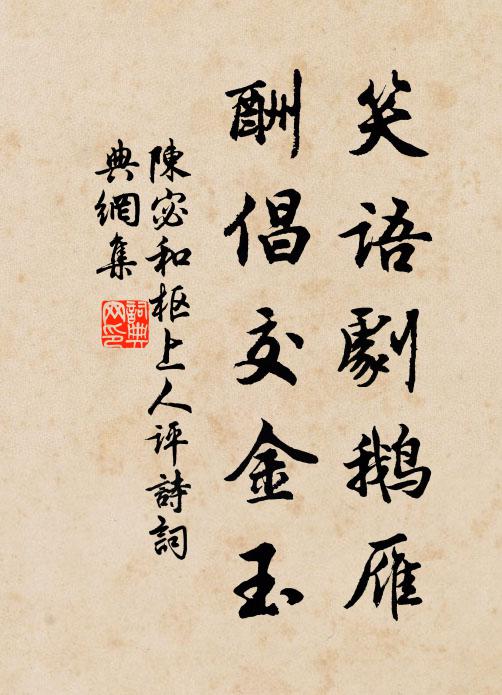 笑语劇鹅雁
酬倡交金玉
陳宓和柩上人评詩詞
典網集
詞典网印